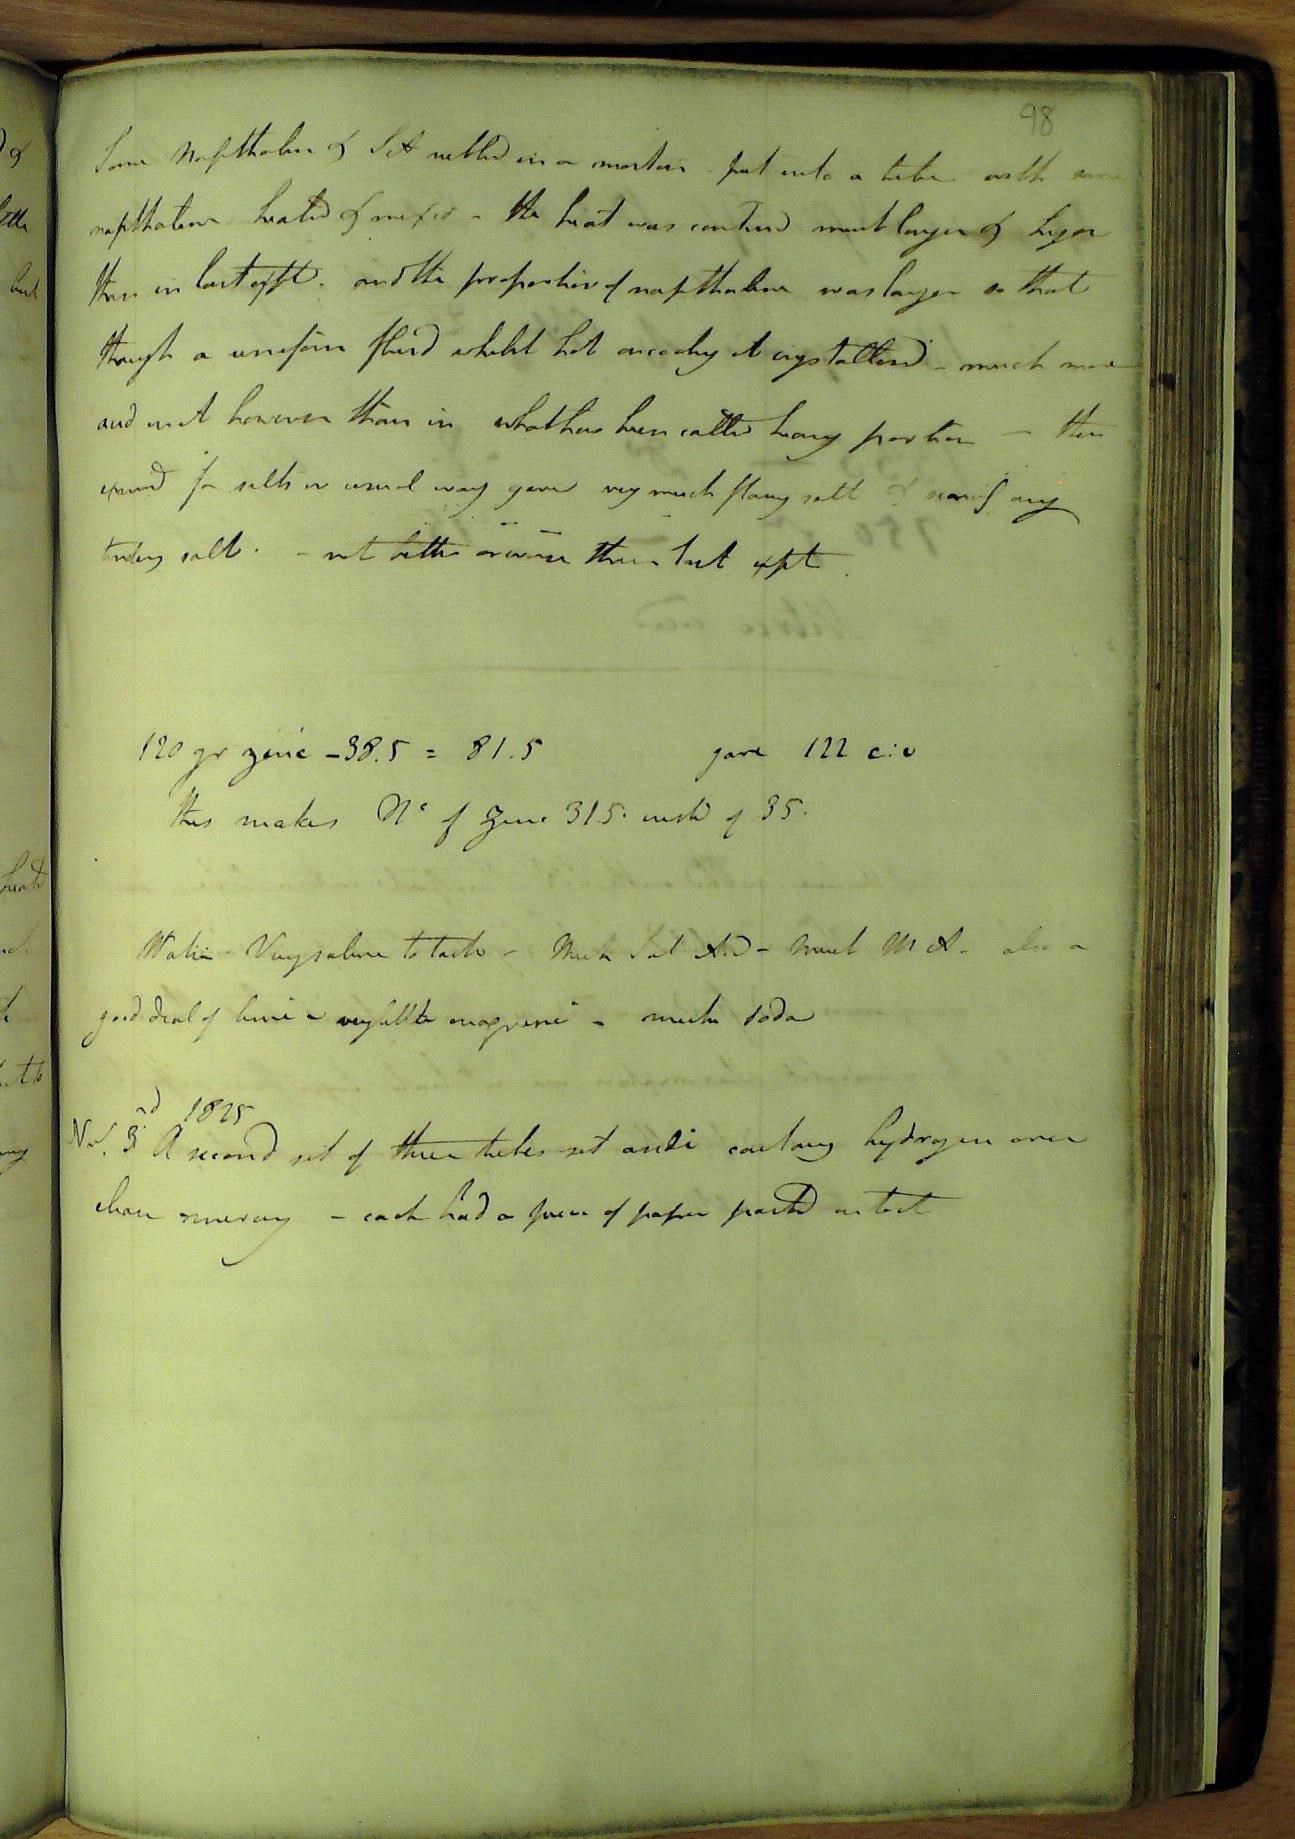 98
Some Napthaline & S A rubbed in a mortar put into a tube with some
napthaline heated & mixed - the heat was continued much longer & higher
than in last expt. and the proportion of napthaline was larger so that
though a uniform fluid whilst hot on cooling it crystallised - much more
acid in it however than in what has been called heavy portion - then
examd for salts in usual way gave very much flamy salt & scarcely any
tindery salt. - not better or worse than last expt.
120 gr zinc - 38.5 = 81.5 gave 122 c:i
this makes No of Zinc 31.5. instd of 35.
Water Very saline to taste - Much Sul Acid - Much M A - also a
good deal of lime - very little magnesia - much soda
Novr. 3rd 1825
A second set of three tubes set aside containg hydrogen over
clean mercury - each had a piece of paper pasted on